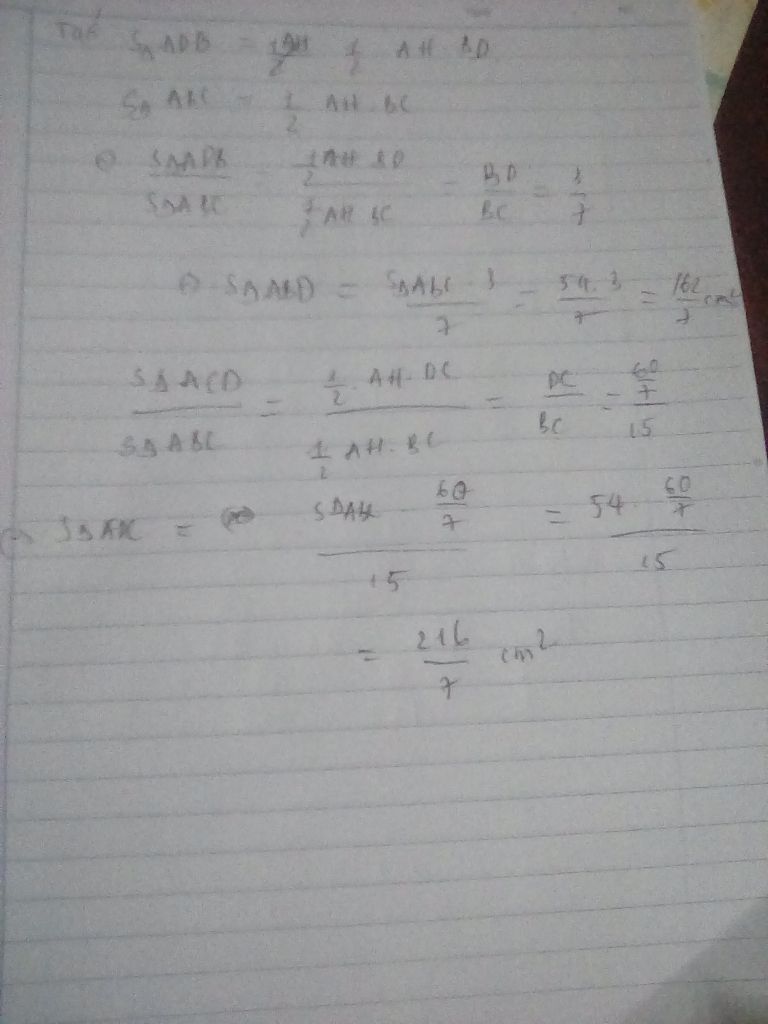 Ta có S△ADB = 1/2 AH . BD
S△ABC = 1/2 AH . BC
=> S△ADB / S△ABC = 1/2 AH . BD / 1/2 AH . BC = BD / BC = 3/7
=> S△ABD = S△ABC . 3 / 7 = 54 . 3 / 7 = 162/7 cm²
S△ACD / S△ABC = 1/2 . AH . DC / 1/2 AH . BC = DC / BC = 60/7 / 15
=> = S△ABC . 60/7 / 15 = 54 . 60/7 / 15
= 216/7 cm²